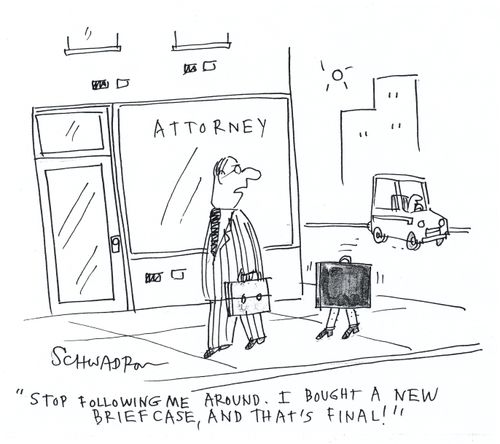 ATTORNEY
SCHWADRON
"STOP FOLLOWING ME AROUND. I BOUGHT A NEW
BRIEFCASE, AND THAT'S FINAL!"